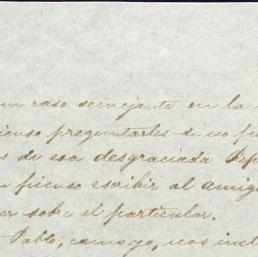 un caso semejante en la
pienso preguntarles si no
s de esa desgraciada Pep
pienso escribir al amig
er sobre el particular.
Pablo, como yo, nos incl